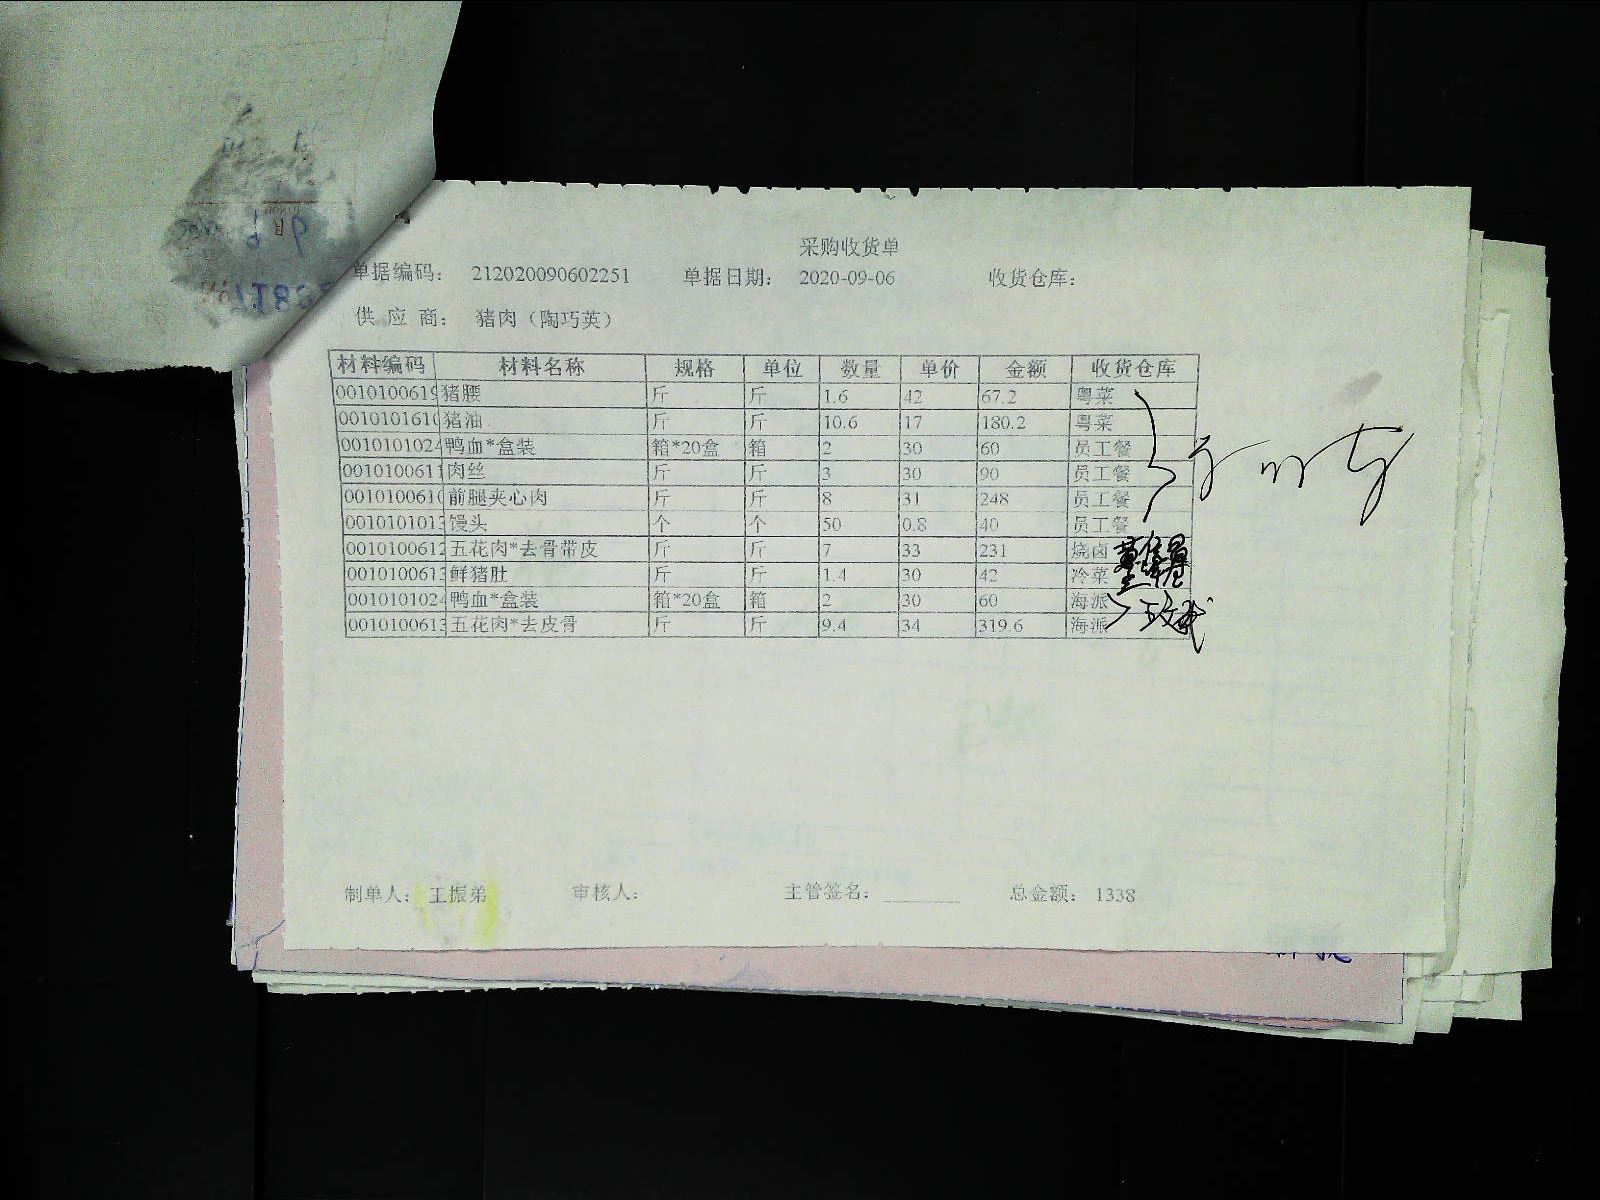 采购收货单
单据编码： 212020090602251 单据日期： 2020-09-06 收货仓库：
供 应 商： 猪肉（陶巧英）
材料编码 材料名称 规格 单位 数量 单价 金额 收货仓库
0010100619 猪腰 斤 斤 1.6 42 67.2 粤菜
0010101610 猪油 斤 斤 10.6 17 180.2 粤菜
0010101024 鸭血*盒装 箱*20盒 箱 2 30 60 员工餐
0010100611 肉丝 斤 斤 3 30 90 员工餐
0010100610 前腿夹心肉 斤 斤 8 31 248 员工餐
0010101013 馒头 个 个 50 0.8 40 员工餐
0010100612 五花肉*去骨带皮 斤 斤 7 33 231 烧卤
0010100613 鲜猪肚 斤 斤 1.4 30 42 冷菜
0010101024 鸭血*盒装 箱*20盒 箱 2 30 60 海派
0010100613 五花肉*去皮骨 斤 斤 9.4 34 319.6 海派
制单人： 王振弟 审核人： 主管签名： 总金额： 1338